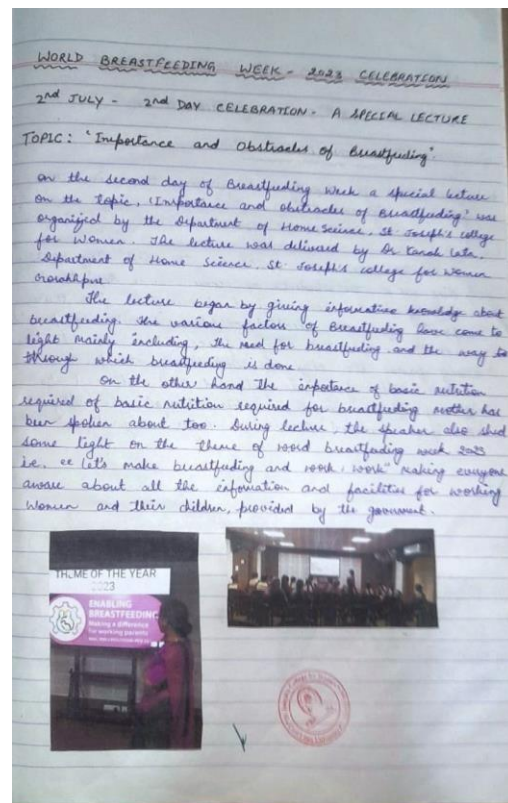 WORLD BREASTFEEDING WEEK - 2023 CELEBRATION
2nd JULY - 2nd DAY CELEBRATION - A SPECIAL LECTURE
TOPIC: "Importance and Obstracles of Breastfeeding".
On the second day of Breastfeeding Week a special lecture
on the topic, 'Importance and obstracles of Breastfeeding' was
organized by the Department of Home Science, St. Joseph's college
for Women. The lecture was deliverd by Dr Kanak Lata,
Department of Home Science, St. Joseph's college for women
Gorakhpur
The lecture began by giving informative knowledge about
breastfeeding. The various factors of Breastfeeding have come to
light mainly including, the need for breastfeeding and the way to
through which breastfeeding is done.
On the other hand the importance of basic nutrition
required of basic nutrition required for breastfeeding mother has
been spoken about too. During lecture, the speaker also shed
some light on the theme of word breastfeeding week 2023
i.e, "Let's make breastfeeding and work, work" making everyone
aware about all the information and facilities for working
women and their children, provided by the goverment.
THEME OF THE YEAR
2023
ENABLING
BREASTFEEDING
Making a difference
for working parents